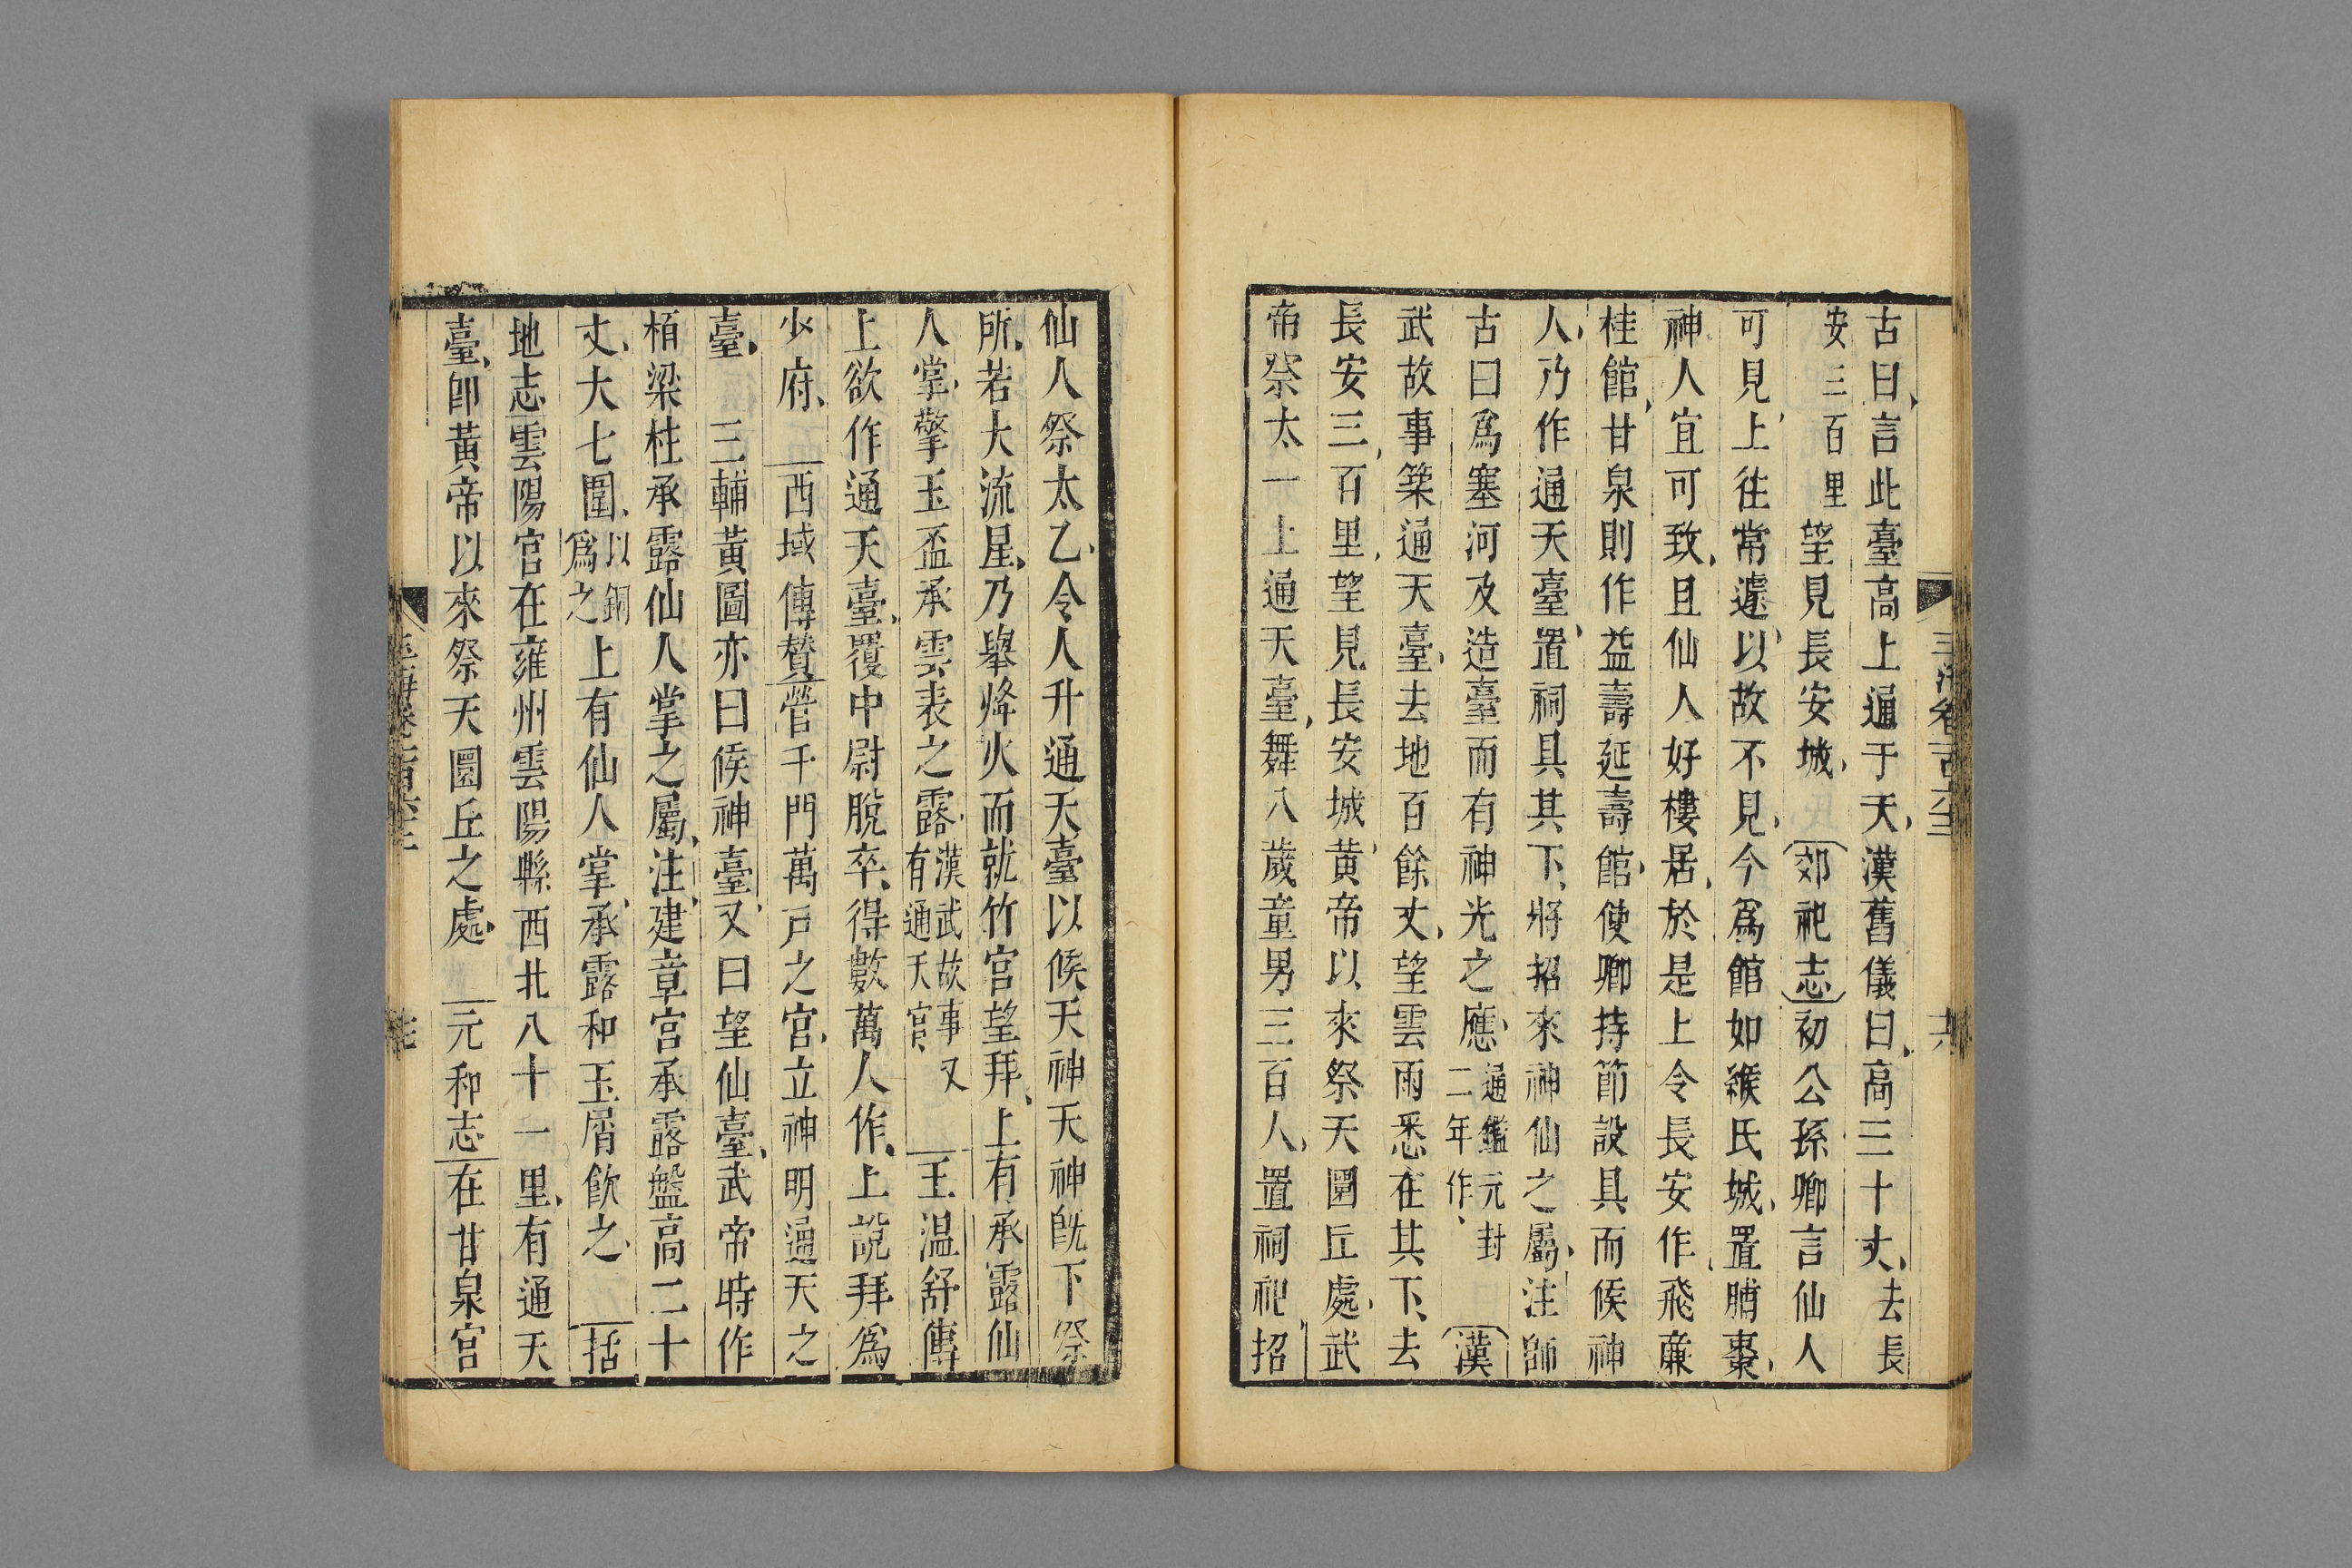 古曰言此臺高上通于天漢舊儀曰高三十丈去長
安三百里望見長安城郊祀志初公孫卿言仙人
可見上往常遽以故不見今爲館如緱氏城置脯棗
神人宜可致且仙人好樓居於是上令長安作飛廉
桂館甘泉則作益壽延壽館使卿持節設具而候神
人乃作通天臺置祠具其下將招來神仙之屬注師
古曰爲塞河及造臺而有神光之應通鑑元封二年作漢
武故事築通天臺去地百餘丈望雲雨悉在其下去
長安三百里望見長安城黄帝以來祭天圜丘處武
帝祭太一上通天臺舞八歲童男三百人置祠祀招
仙人祭太乙令人升通天臺以候天神天神既下祭
所若大流星乃舉烽火而就竹宫望拜上有承露仙
人掌擎玉盃承雲表之露漢武故事又有通天宫王温舒傳
上欲作通天臺覆中尉脫卒得數萬人作上說拜爲
少府西域傳贊營千門萬戸之宫立神明通天之
臺三輔黃圖亦曰候神臺又曰望仙臺武帝時作
栢梁柱承露仙人掌之屬注建章宫承露盤高二十
丈大七圍以銅爲之上有仙人掌承露和玉屑飮之括
地志雲陽宫在雍州雲陽縣西北八十一里有通天
臺卽黃帝以來祭天圜丘之處元和志在甘泉宫